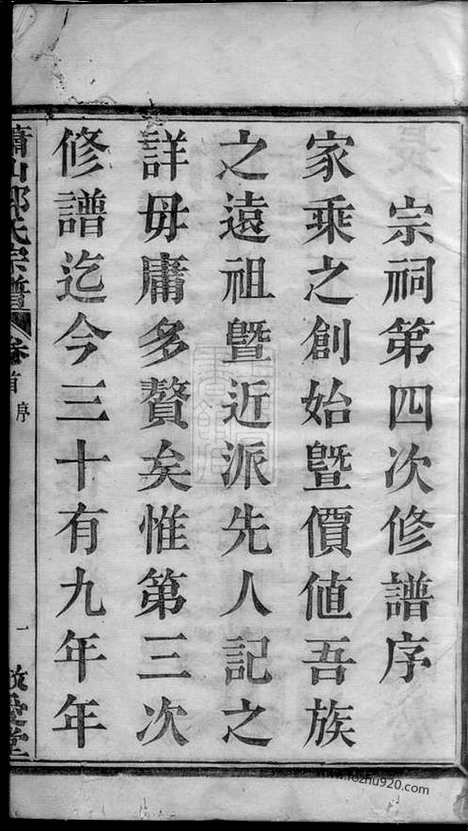 宗祠第四次修譜序
家乘之創始暨價值吾族
之遠祖暨近派先人記之
詳毋庸多贅矣惟第三次
修譜迄今三十有九年年
蕭山郎氏宗譜
卷首
序
一
敬愛堂
www.fozhu920.com